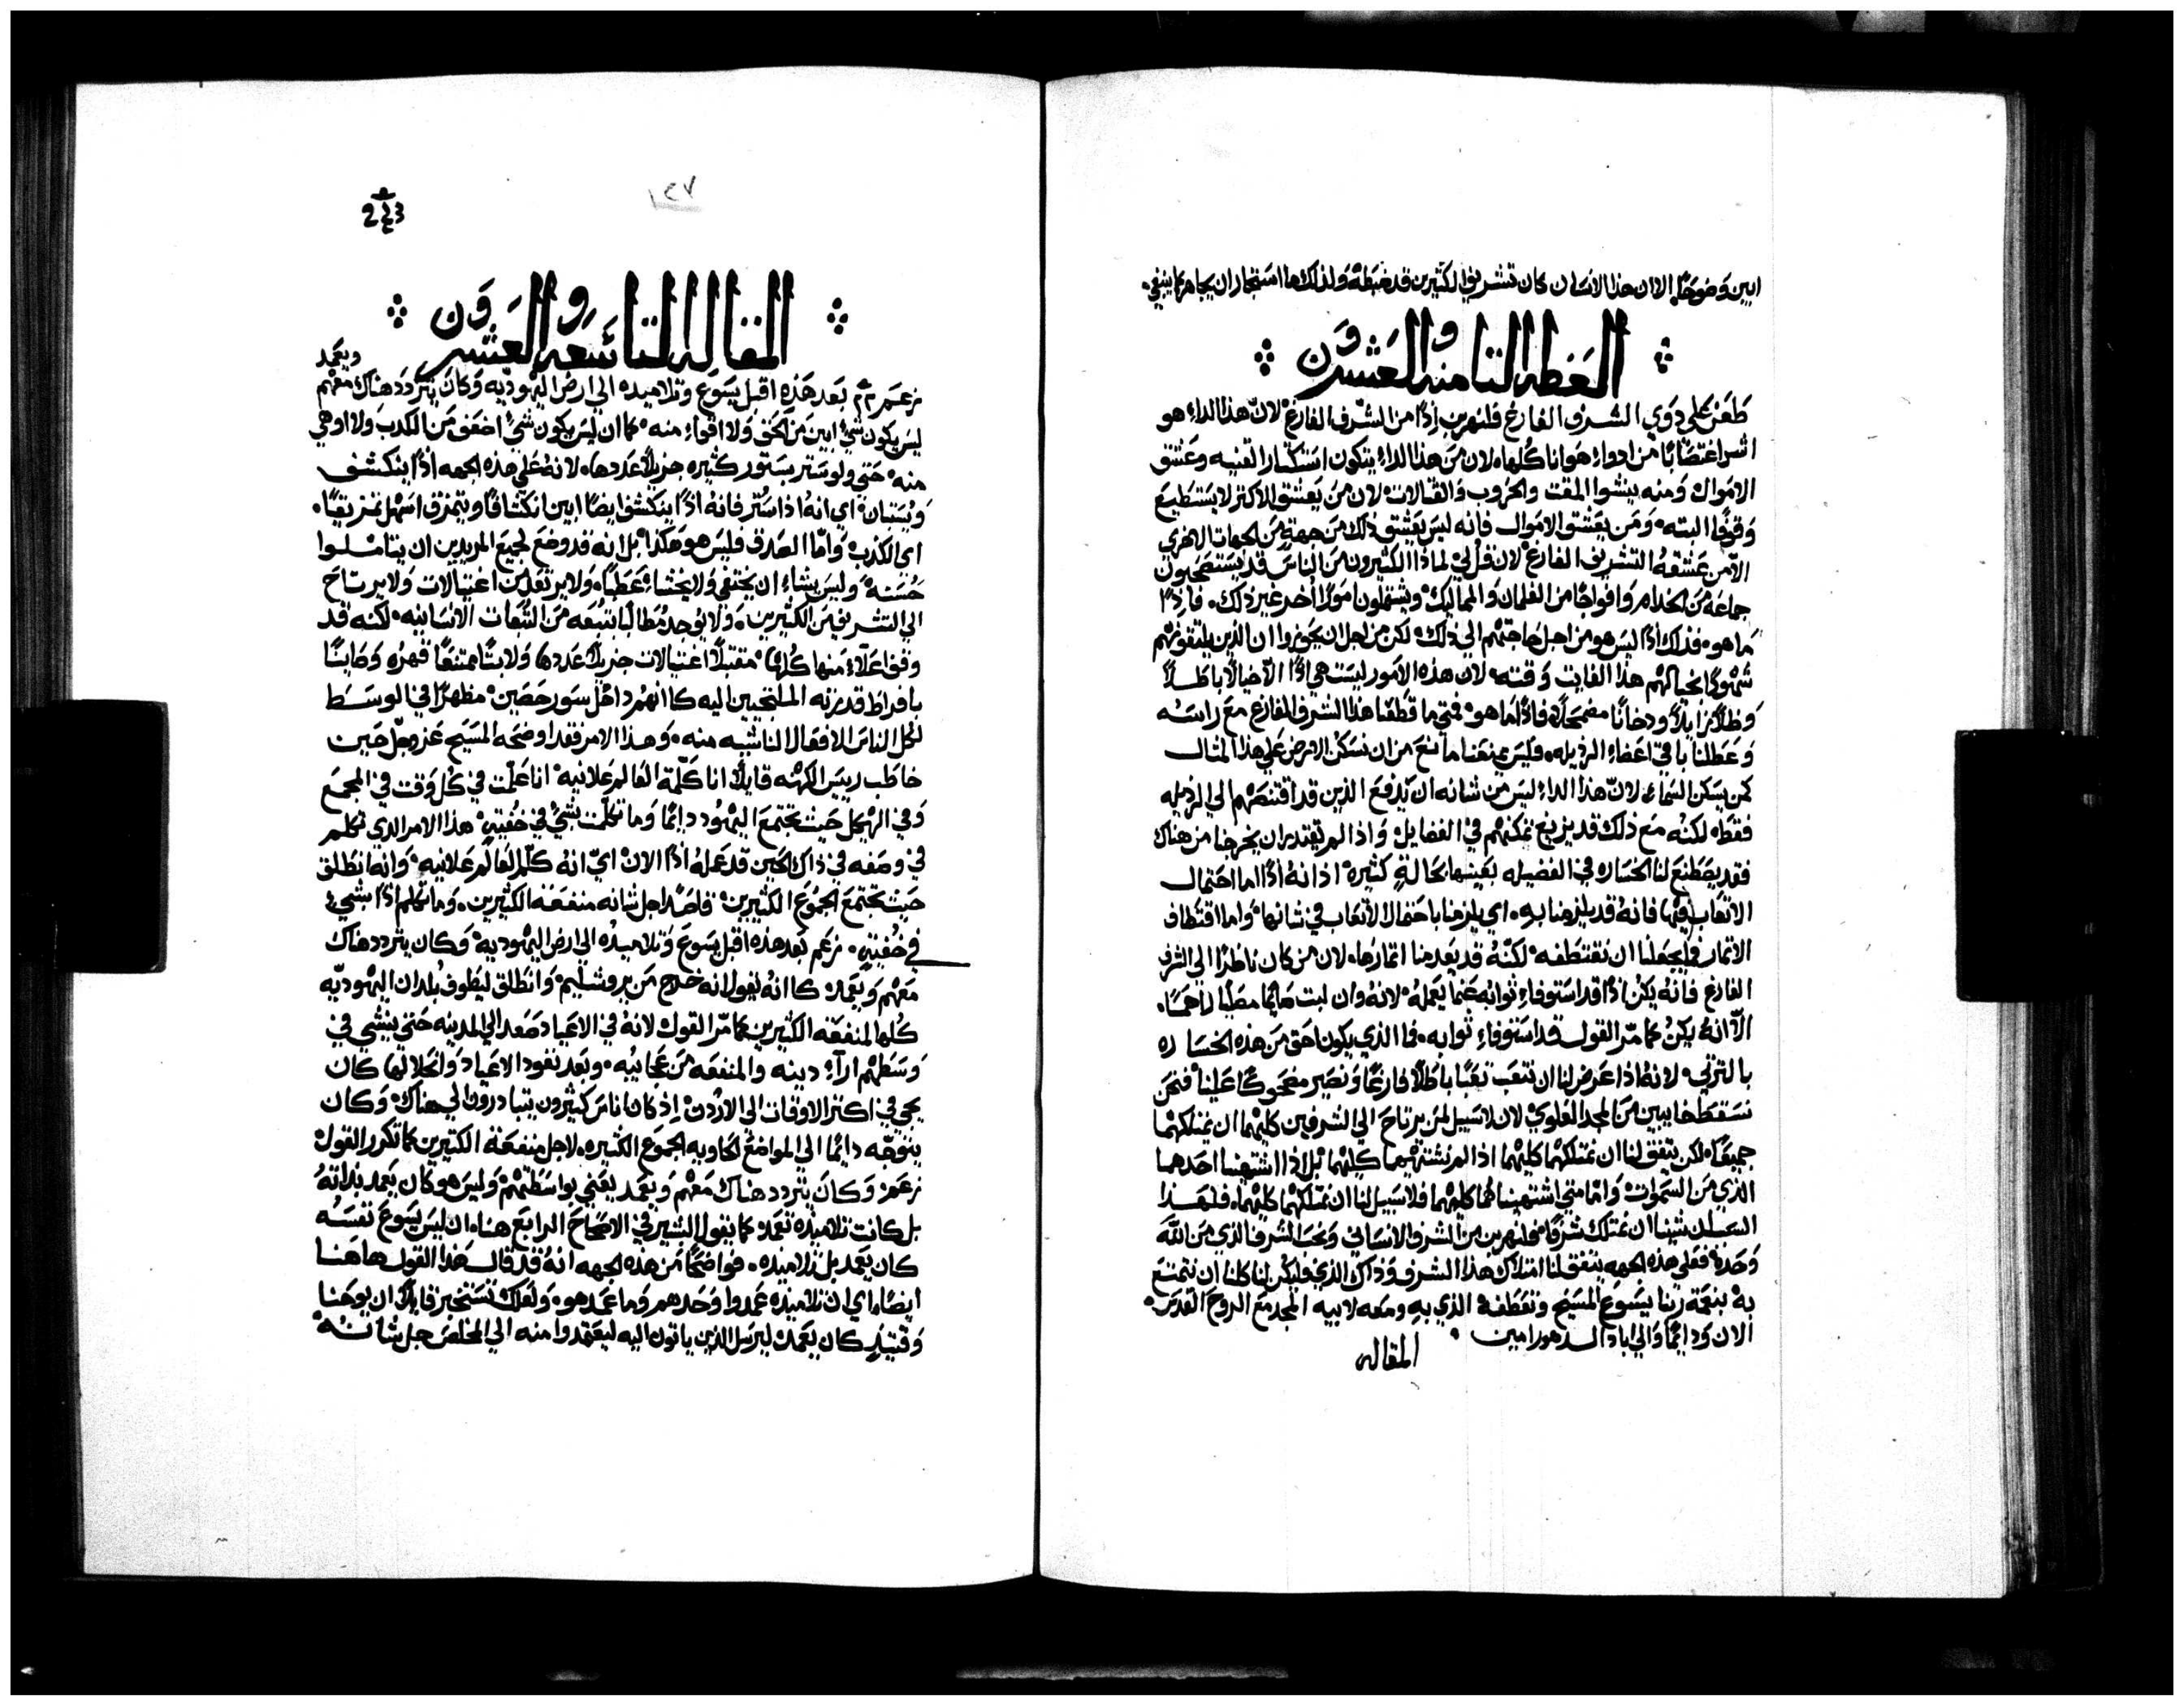 ابين وضوحًا. الا ان هذا الانسان كان تشريف الكثيرين قد ضبطه ولذلك ما استجار ان يجاهر كما ينبغي.
العظه التامنه والعشرون
طعن على دوي الشرف الفارغ فلنهربن إذًا من الشرف الفارغ لان هذا الداء هو
اشر اغتصابًا من ادواء هوانا كلها. لان من هذا الداء يتكون استكتار القنيه وعشق
الاموال ومنه ينشوا المقت والحروب والقتالات لان من يعشق الاكتر لا يستطيع
وقوفًا البته. ومن يعشق الاموال فانه ليس يعشق ذلك من جهةٍ من الجهات الاخري
الا من عشقه التشريف الفارغ لان قل لي لماذا الكثيرون من الناس قد يستصحبون
جماعة من الخدام وافواجًا من الغلمان والمماليك ويشتملون امورًا أخر غير ذلك. فاذًا
ما هو. فذلك اذًا ليس هو من اجل حاجتهم الي ذلك لكن من اجل ان يحوزوا ان الذين يلتقونهم
شهودًا لخيالهم هذا الفايت وقته لان هذه الامور ليست هي اذًا الا خيالًا باطلًا
وظلًا زايلًا ودخانًا مضمحلًا. فاذًا ما هو. فمتي ما قطعنا هذا الشرف الفارغ مع راسه
وعطلنا باقي اعضاء الرذيله. فليس يمنعنا مانع من ان نسكن الارض علي هذا المثال
كمن يسكن السماء. لان هذا الداء ليس من شانه ان يدفع الذين قد اقتنصهم الي الرذيله
فقط. لكنه مع ذلك قد يزيغ تمكنهم في الفضايل. واذا لم يقتدر ان يخرجنا من هناك
فقد يصطنع لنا الخساره في الفضيله بعينها بحالةٍ كثيره اذ انه اذًا اما احتمال
الاتعاب فيها فانه قد يلزمنا به. اي يلزمنا باحتمال الاتعاب في شانها. واما اقتطاف
الاتمار فما يجعلنا ان نقتطفه. لكنه قد يعدمنا اتمارها. لان من كان ناظرًا الي الشرف
الفارغ فانه يكن اذًا قد استوفاء توابه عما يعمله. لانه وان لبت صايمًا مصليًا راحمًا.
الا انه يكن كما مر القول قد استوفاء توابه. فما الذي يكون احق من هذه الخساره
بالترتي. لانه اذا عرض لنا ان نتعب تعبًا باطلًا فارغًا ونصير مضحوكًا علينا فنحن
نسقط خايبين من المجد العلوي لان لا سبيل لمن يرتاح الي الشرفين كليهما ان يمتلكهما
جميعًا. لكن يتفق لنا ان نمتلكهما كليهما اذا لم نشتهيهما كليهما بل اذا اشتهينا احدهما
الذي من السموات. واما متي اشتهيناهما كليهما فلا سبيل لنا ان نمتلكهما كليهما. فلهذا
ان شينا ان نمتلك شرفًا. فلنهربن من الشرف الانساني ونحب الشرف الذي من الله
وحده. فعلي هذه الجهه يتفق لنا امتلاك هذا الشرف وذاك الذي فليكن لنا كلنا ان نتمتع
به بنعمة ربنا يسوع المسيح وتعطفه الذي به ومعه لابيه المجد مع الروح القدس.
الان ودايمًا والي اباد الدهور امين.
المقاله
١٤٧
المقاله التاسعه والعشرون
زعم بعد هذه اقبل يسوع وتلاميده الي ارض اليهوديه وكان يتردد هناك معهم
ويعمد
ليس يكون شي ابين من الحق ولا اقواء منه. كما ان ليس يكون شي اضعف من الكدب ولا اوهي
منه. حتي ولو ستر بستور كثيره جزيلًا عددها. لانه علي هذه الجهه اذًا ينكشف
ويستبان اي انه اذا ستر فانه اذًا ينكشف ايضًا ابين انكشافًا ويتمزق اسهل تمزيقًا.
اي الكذب. واما الصدق فليس هو هكذا بل انه قد وضع لجميع المريدين ان يتاملوا
حسنه وليس يشاء ان يختفي ولا يخشاء عطبًا. ولا يرتعد من اغتيالات ولا يرتاح
الي التشريف من الكثيرين. ولا يوجد مطالبًا بتبعه من التبعات الانسانيه. لكنه قد
وقف اعلاء منها كلها مقتبلًا اغتيالات جزيلًا عددها ولابتًا ممتنعًا قهره وصاينًا
بافراط قدرته الملتجيين اليه كانهم داخل سور حصين. مظهرًا في الوسط
لكل الناس الافعال الناشيه منه. وهذا الامر فقد اوضحه المسيح عز وجل حين
خاطب رييس الكهنه قايلًا انا كلمة العالم علانيه. انا علمت في كل وقت في المجمع
وفي الهيكل حيث تجتمع اليهود دايمًا وما تكلمت بشيٍ في خفيةٍ. هذا الامر الذي تكلم
في وصفه في ذاك الحين قد عمله اذًا الان اي انه كلم العالم علانيه. وانه انطلق
حيث تجتمع الجموع الكثيرين. قاصدًا جل شانه منفعة الكثيرين. وما تكلم اذًا بشيء
في خفيةٍ. زعم بعد هذه اقبل يسوع وتلاميده الي ارض اليهوديه وكان يتردد هناك
معهم ويعمد. كانه يقول انه خرج من يروشليم وانطلق ليطوف بلدان اليهوديه
كلها لمنفعة الكثيرين كما مر القول لانه في الاعياد صعد الي المدينه حتي ينشي في
وسطهم اراء دينه والمنفعه من عجايبه. وبعد نفود الاعياد وانحلالها كان
يجي في اكتر الاوقات الي الاردن إذ كان اناس كثيرون يتبادرون الي هناك. وكان
يتوجه دايمًا الي المواضع الحاويه الجموع الكثيره. لاجل منفعة الكتيرين كما تكرر القول
زعم. وكان يتردد هناك معهم ويعمد يعني بواسطتهم. وليس هو كان يعمد بذاته
بل كانت تلاميده تعمد. كما يقول البشير في الاصحاح الرابع هنا. ان ليس يسوع نفسه
كان يعمد بل تلاميده. فواضحًا من هذه الجهه انه قد قال هذا القول هاهنا
ايضًا. اي ان تلاميده عمدوا وحدهم وما عمد هو. ولعلك تستخبر قايلًا ان يوحنا
وقتيذٍ كان يعمد ليرسل الذين ياتون اليه ليعتمدوا منه الي المخلص جل شانه